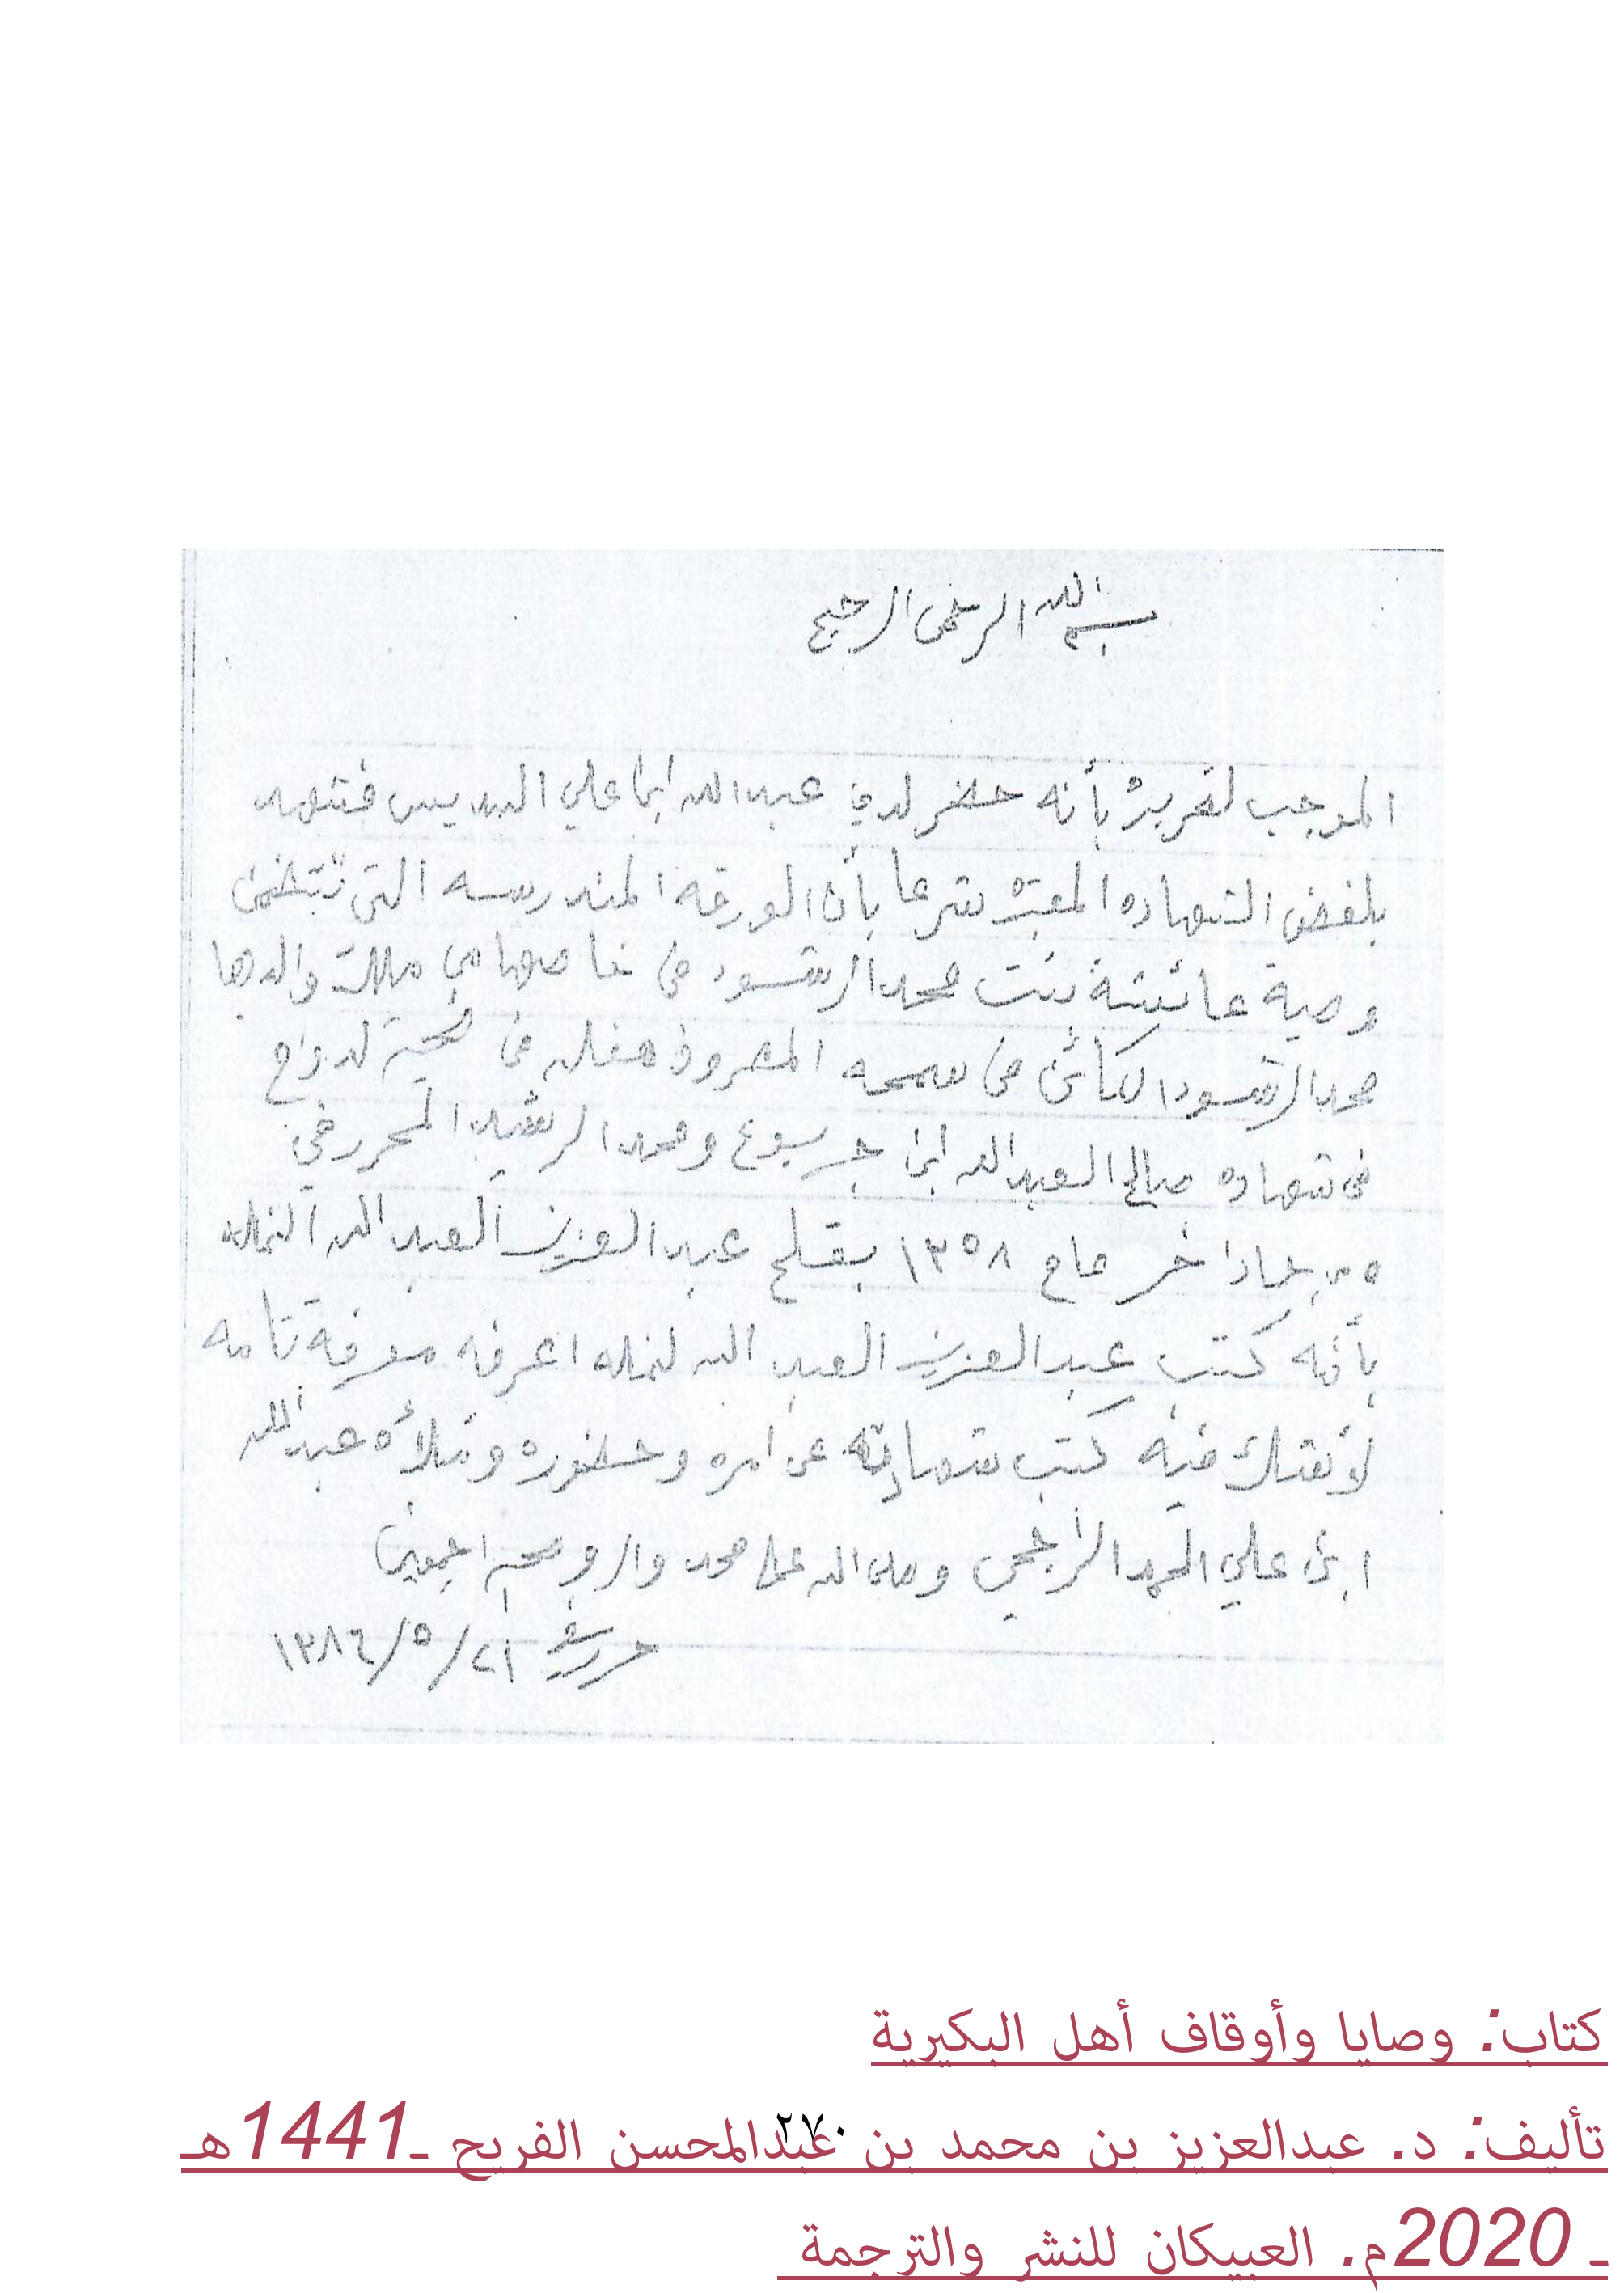 بسم الله الرحمن الرحيم
الموجب لتحريره بأنه حضر لدي عبدالله ابن علي البديس فشهد
بلفض الشهاده المعتبره شرعا بأن الورقه المندرسه التي تتضمن
وصية عائشة بنت محمد الرشود في خاصها من ملك والدها
محمد الرشود الكائن في سمحه المعروف هناك في ضحية لدواح
في شهادة صالح العبدالله ابن جريوع ومحمد الرشيد المحرر في
٢٥ جماد اخر عام ١٣٥٨ بقلم عبدالعزيز العبدالله النمله
بأنه كتب عبدالعزيز العبدالله لنمله اعرفه معرفة تامه
لأ نشك فيه كتب شهادته عن امره وحضوره وملأه عبدالله
ابن علي الحمد الراجحي وصلى الله على محمد واله وصحبه اجمعين
حرر في ٢١/٥/١٣٨٦
كتاب: وصايا وأوقاف أهل البكيرية
تأليف: د. عبدالعزيز بن محمد بن عبدالمحسن الفريح ـ1441هـ
٢٧٠
ـ 2020م. العبيكان للنشر والترجمة